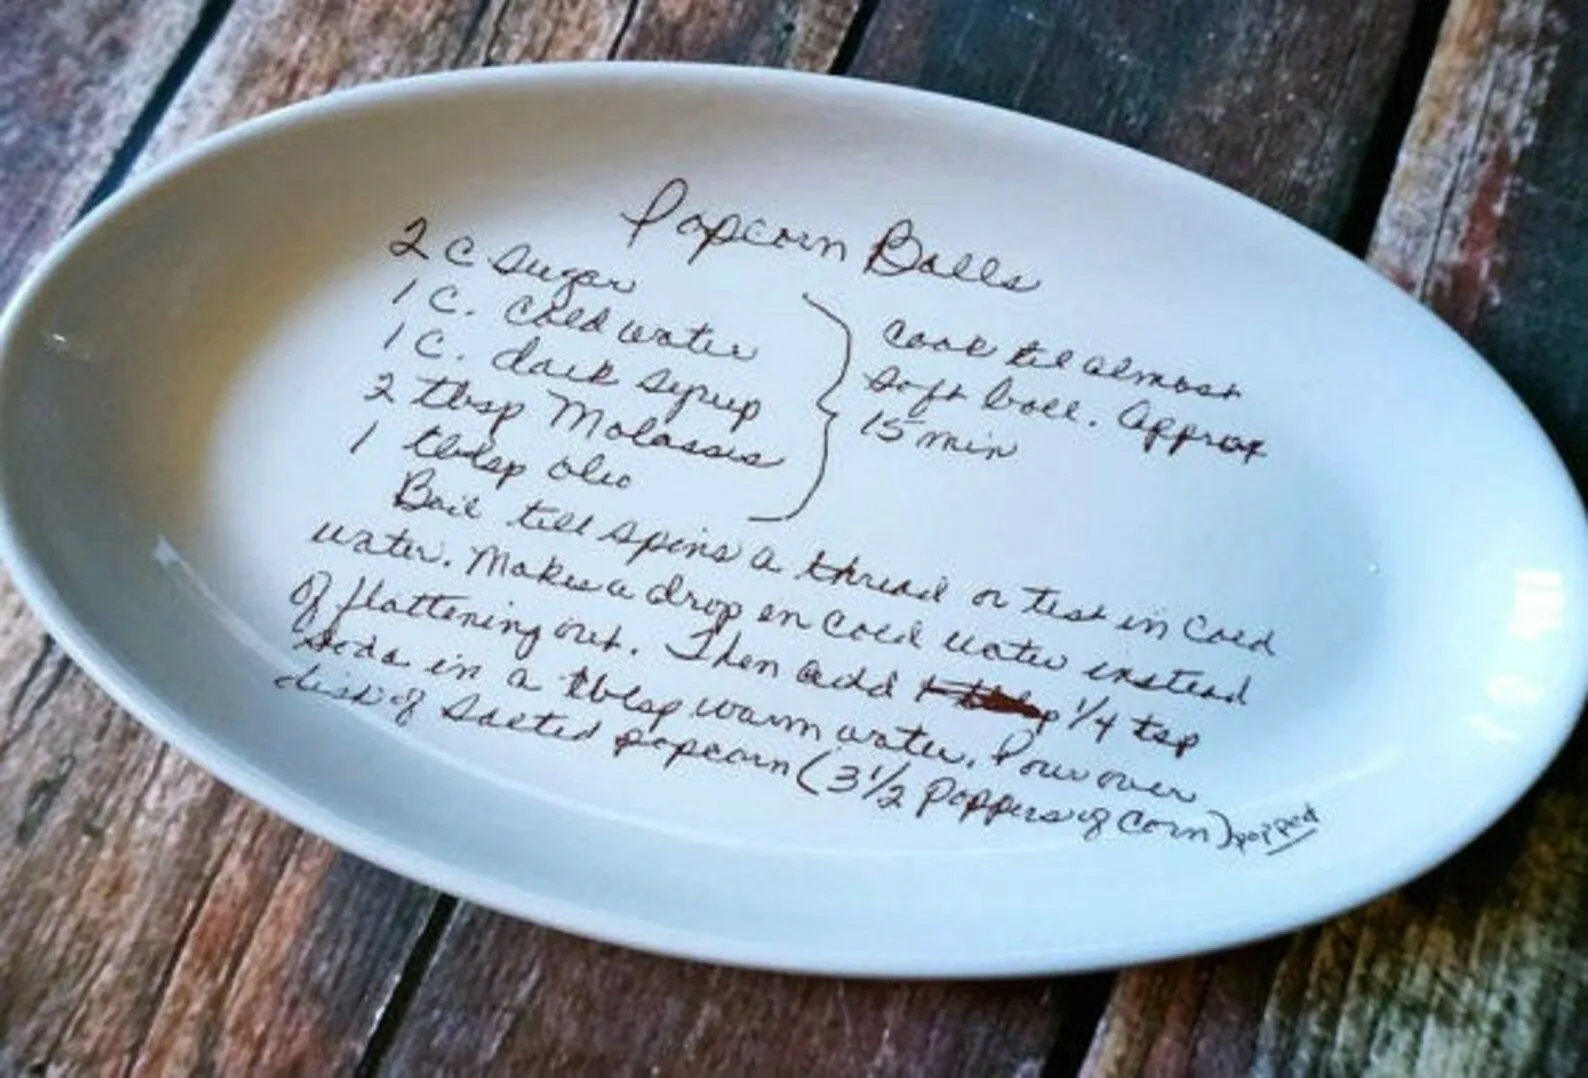 Popcorn Balls
2 C Sugar
1 C. Cold water
1 C. dark syrup
2 tbsp Molasses
1 tblsp oleo
Cook til almost
soft ball. Approx
15 min
Boil till spins a thread or test in Cold
water. Makes a drop in Cold water instead
of flattening out. Then add 1/4 tsp
soda in a tblsp warm water. Pour over
dish of salted popcorn (3 1/2 Poppers of Corn) popped